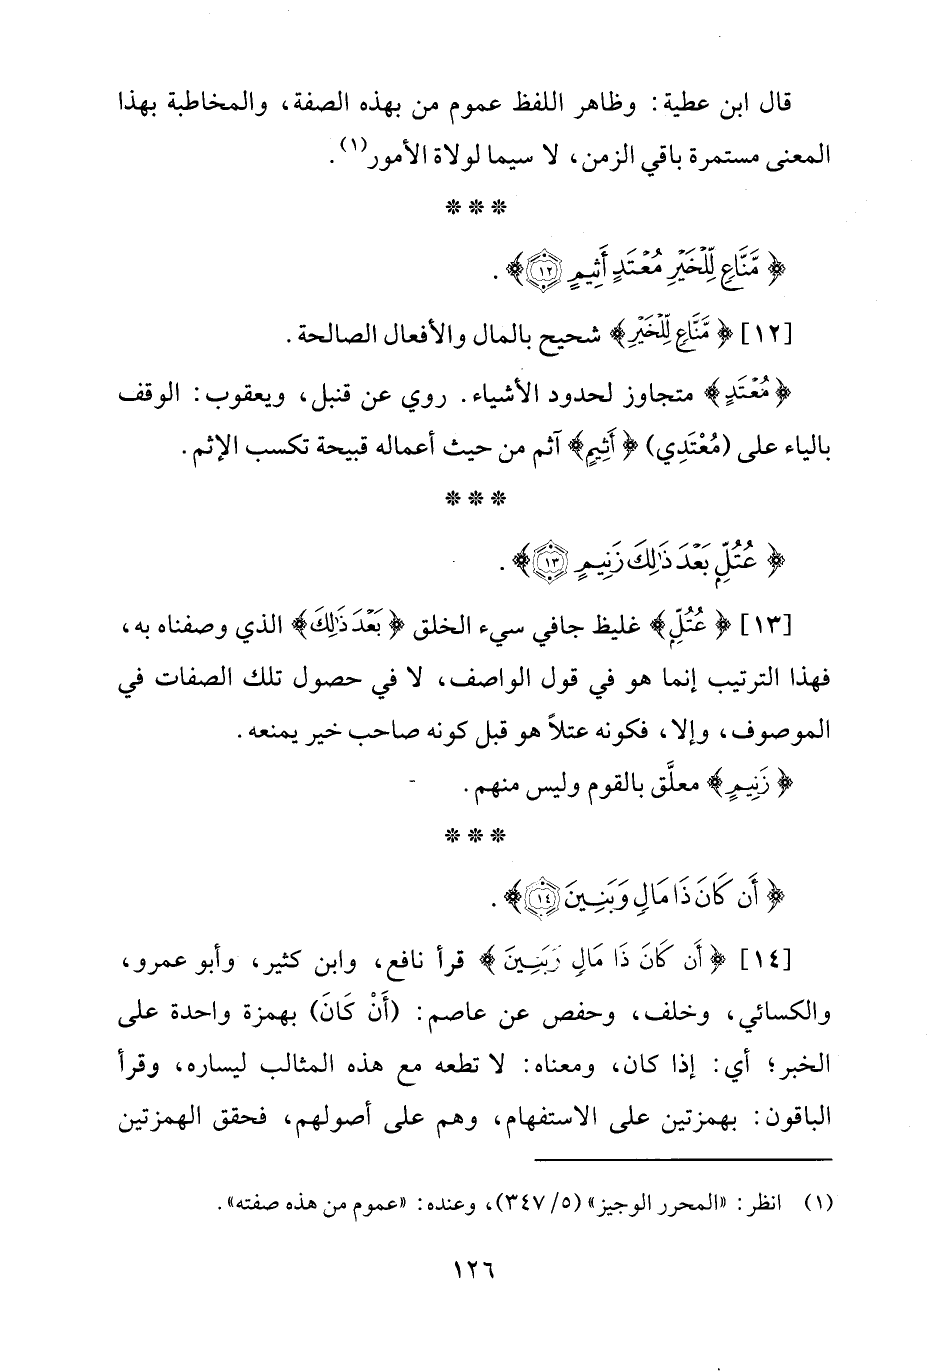 قال ابن عطية: وظاهر اللفظ عموم من بهذه الصفة، والمخاطبة بهذا
المعنى مستمرة باقي الزمن، لا سيما لولاة الأمور(١).
* * *
﴿ مَّنَّاعٍ لِّلْخَيْرِ مُعْتَدٍ أَثِيمٍ ١٢﴾ .
[١٢] ﴿ مَّنَّاعٍ لِّلْخَيْرِ﴾ شحيح بالمال والأفعال الصالحة.
﴿مُعْتَدٍ﴾ متجاوز لحدود الأشياء. روي عن قنبل، ويعقوب: الوقف
بالياء على (مُعْتَدِي) ﴿ أَثِيمٍ﴾ آثم من حيث أعماله قبيحة تكسب الإثم.
* * *
﴿ عُتُلٍّ بَعْدَ ذَٰلِكَ زَنِيمٍ ١٣﴾ .
[١٣] ﴿ عُتُلٍّ﴾ غليظ جافي سيء الخلق ﴿بَعْدَ ذَٰلِكَ﴾ الذي وصفناه به،
فهذا الترتيب إنما هو في قول الواصف، لا في حصول تلك الصفات في
الموصوف، وإلا، فكونه عتلاً هو قبل كونه صاحب خير يمنعه.
﴿ زَنِيمٍ﴾ معلَّق بالقوم وليس منهم.
* * *
﴿ أَن كَانَ ذَا مَالٍ وَبَنِينَ ١٤﴾ .
[١٤] ﴿ أَن كَانَ ذَا مَالٍ وَبَنِينَ﴾ قرأ نافع، وابن كثير، وأبو عمرو،
والكسائي، وخلف، وحفص عن عاصم: (أَنْ كَانَ) بهمزة واحدة على
الخبر؛ أي: إذا كان، ومعناه: لا تطعه مع هذه المثالب ليساره، وقرأ
الباقون: بهمزتين على الاستفهام، وهم على أصولهم، فحقق الهمزتين
(١) انظر: «المحرر الوجيز» (٥/ ٣٤٧)، وعنده: «عموم من هذه صفته».
١٢٦